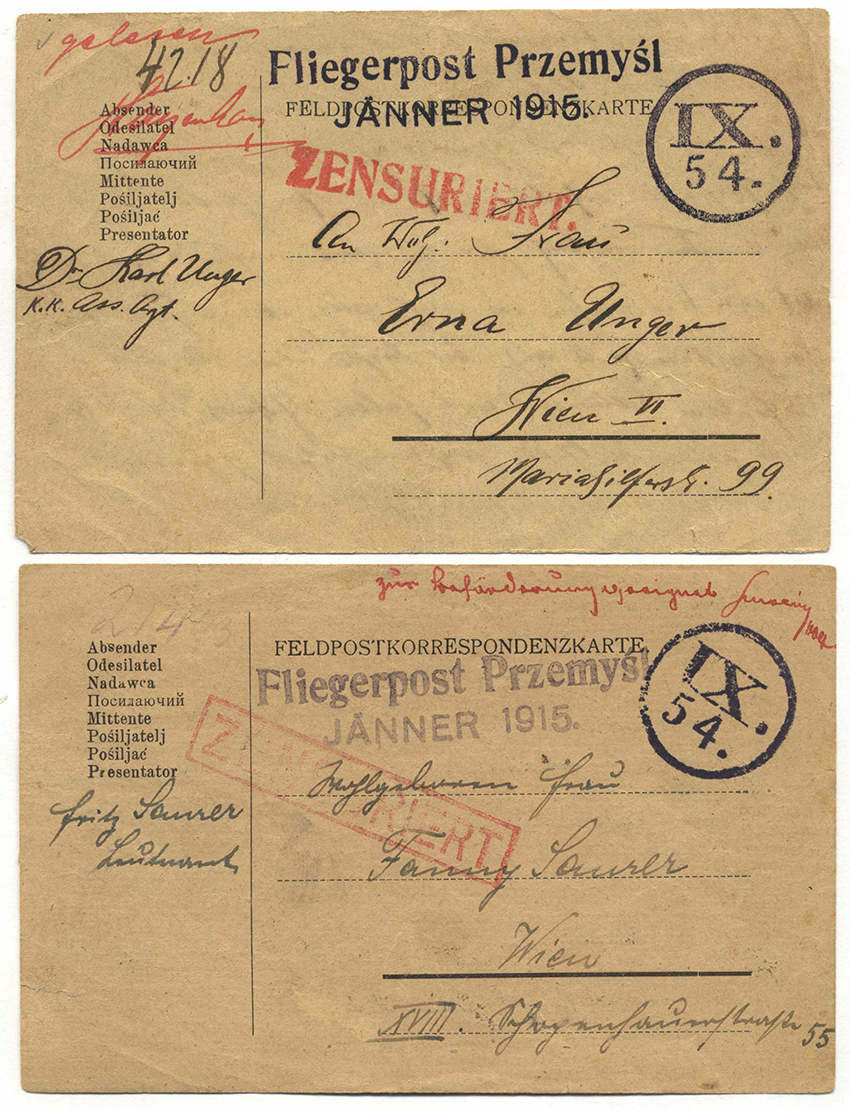 gelesen
4218
Fliegerpost Przemyśl
JÄNNER 1915.
FELDPOSTKORRESPONDENZKARTE
IX.
54.
ZENSURIERT.
Absender
Odesilatel
Nadawca
Посилаючий
Mittente
Pošiljatelj
Pošiljač
Presentator
Dr Karl Unger
K.K. Ass. Arzt.
An Wolg: Frau
Erna Unger
Wien VI.
Mariahilferstr. 99.
zur Beförderung geeignet
FELDPOSTKORRESPONDENZKARTE
Fliegerpost Przemyśl
JÄNNER 1915.
IX.
54.
ZENSURIERT
Absender
Odesilatel
Nadawca
Посилаючий
Mittente
Pošiljatelj
Pošiljač
Presentator
Fritz Saurer
Leutnant
Wohlgeboren Frau
Fanny Saurer
Wien
XVIII. Schopenhauerstraße 55